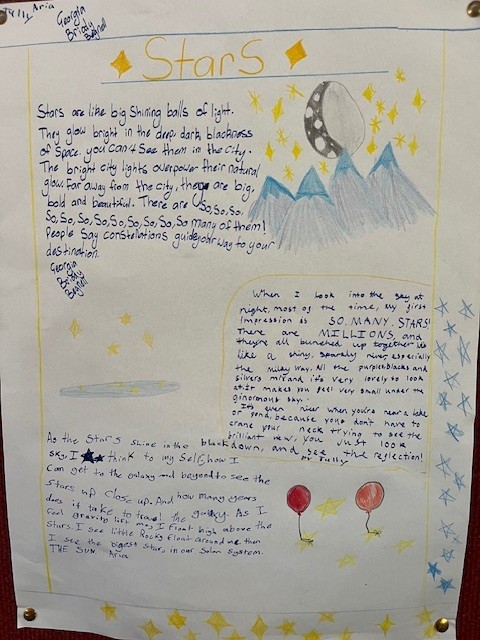 Tully Aria
Georgia
Briody
Begnell
Stars
Stars are like big shining balls of light.
They glow bright in the deep, dark blackness
of space. you can't see them in the city.
The bright city lights overpower their natural
glow. Far away from the city, there are big,
bold and beautiful. There are so, so, so,
so, so, so, so, so, so, so, so, so many of them!
People say constelations guide your way to your
destination.
Georgia
Briody
Begnell
When I look into the sky at
night, most of the time, my first
impression is SO. MANY. STARS!
There are MILLIONS, and
they're all bunched up together
like a shiny, sparkly river, especially
the milky way. All the purples blacks and
silvers mix and it's very lovely to look
at. It makes you feel very small under the
ginormous sky.
It's even nicer when you're near a lake
or pond, because you don't have to
crane your neck trying to see the
brilliant view. You just look
down, and see the reflection!
by Tully
As the stars shine in the black
sky, I think to my self, how I
can get to the galaxy and beyond to see the
stars up close up. And how many years
does it take to travel the galaxy. As I
feel gravity lift me, I float high above the
stars. I see little Rocky float around me then
I see the bigest star, in our Solar System.
THE SUN. Aria